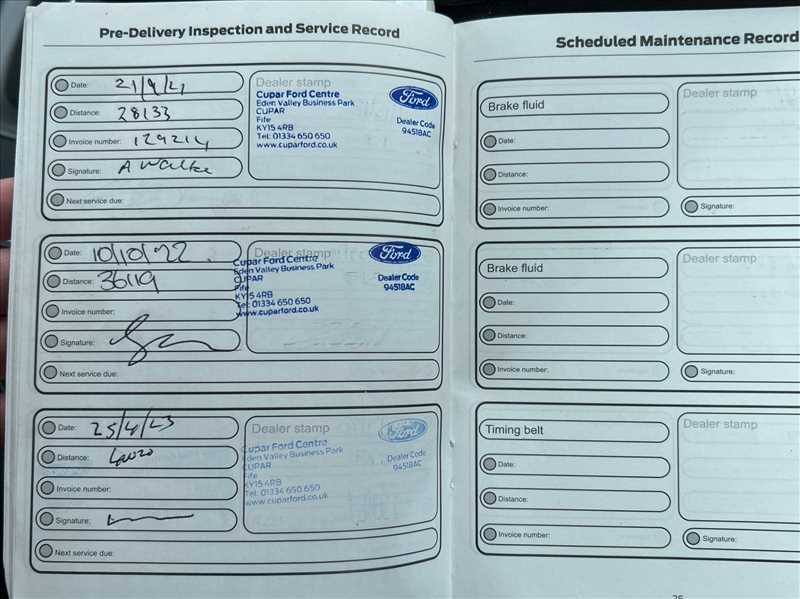 Pre-Delivery Inspection and Service Record
Date: 21/9/21
Distance: 28133
Invoice number: 129214
Signature: A Walke
Next service due:
Dealer stamp
Cupar Ford Centre
Eden Valley Business Park
CUPAR
Fife
KY15 4RB
Tel: 01334 650 650
www.cuparford.co.uk
Ford
Dealer Code
94518AC
Date: 10/10/22.
Distance: 36119
Invoice number:
Signature:
Next service due:
Dealer stamp
Cupar Ford Centre
Eden Valley Business Park
CUPAR
Fife
KY15 4RB
Tel: 01334 650 650
www.cuparford.co.uk
Ford
Dealer Code
94518AC
Date: 25/4/23
Distance:
Invoice number:
Signature:
Next service due:
Dealer stamp
Cupar Ford Centre
Eden Valley Business Park
CUPAR
Fife
KY15 4RB
Tel: 01334 650 650
www.cuparford.co.uk
Ford
Dealer Code
94518AC
Scheduled Maintenance Record
Brake fluid
Date:
Distance:
Invoice number:
Dealer stamp
Signature:
Brake fluid
Date:
Distance:
Invoice number:
Dealer stamp
Signature:
Timing belt
Date:
Distance:
Invoice number:
Dealer stamp
Signature: